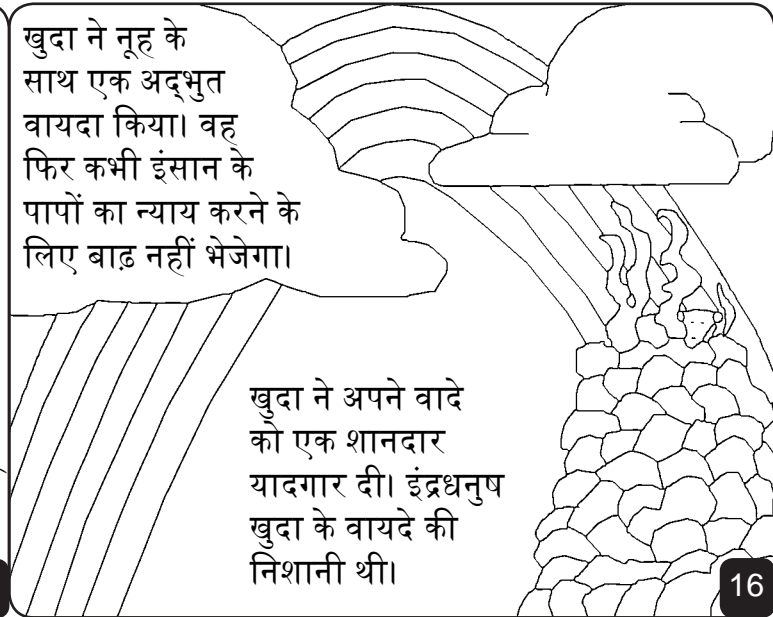 खुदा ने नूह के
साथ एक अद्‌भुत
वायदा किया। वह
फिर कभी इंसान के
पापों का न्याय करने के
लिए बाढ़ नहीं भेजेगा।
खुदा ने अपने वादे
को एक शानदार
यादगार दी। इंद्रधनुष
खुदा के वायदे की
निशानी थी।
16